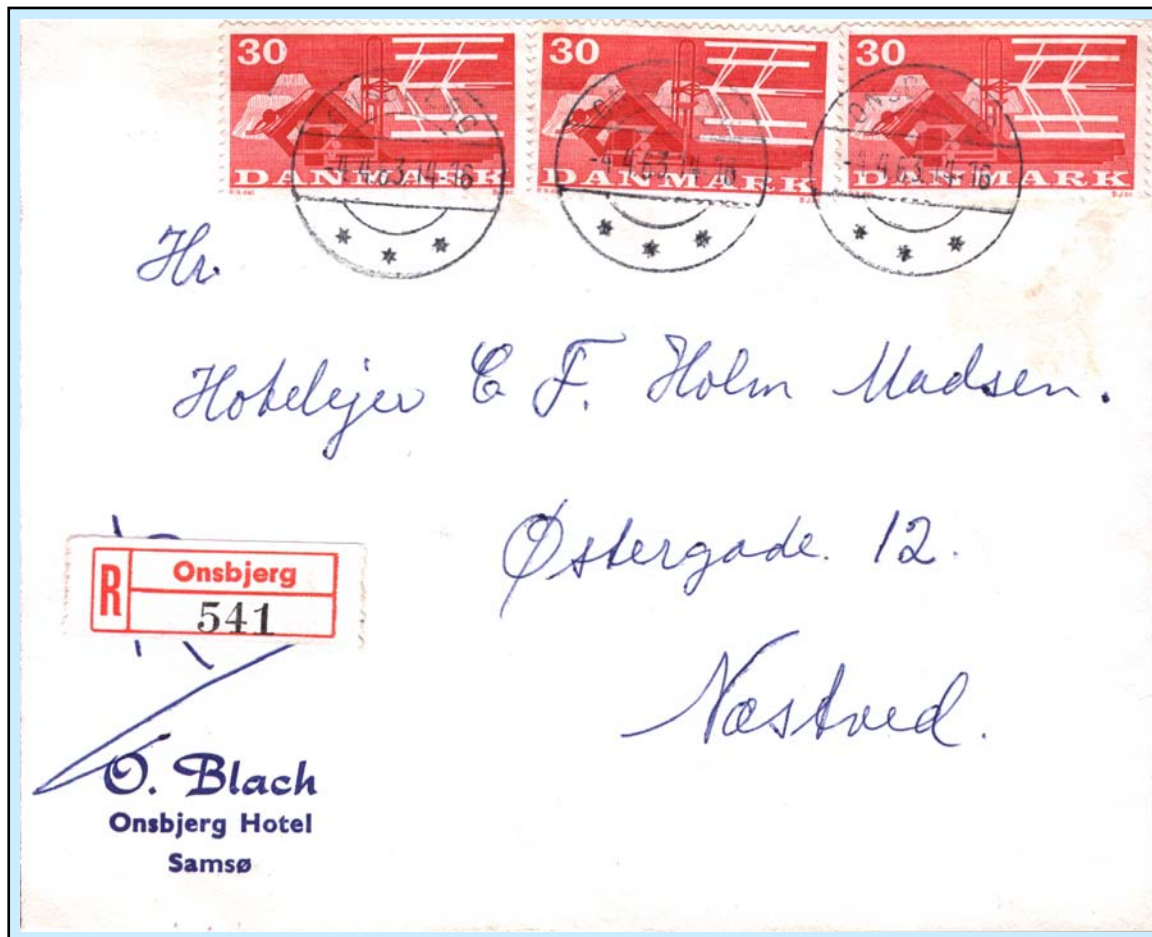 30 30 30
DANMARK DANMARK DANMARK
-4.4.63.14-16 -4.4.63.14-16 -4.4.63.14-16
Hr.
Hotelejer C F. Holm Madsen.
Østergade. 12.
Næstved.
R Onsbjerg
541
O. Blach
Onsbjerg Hotel
Samsø